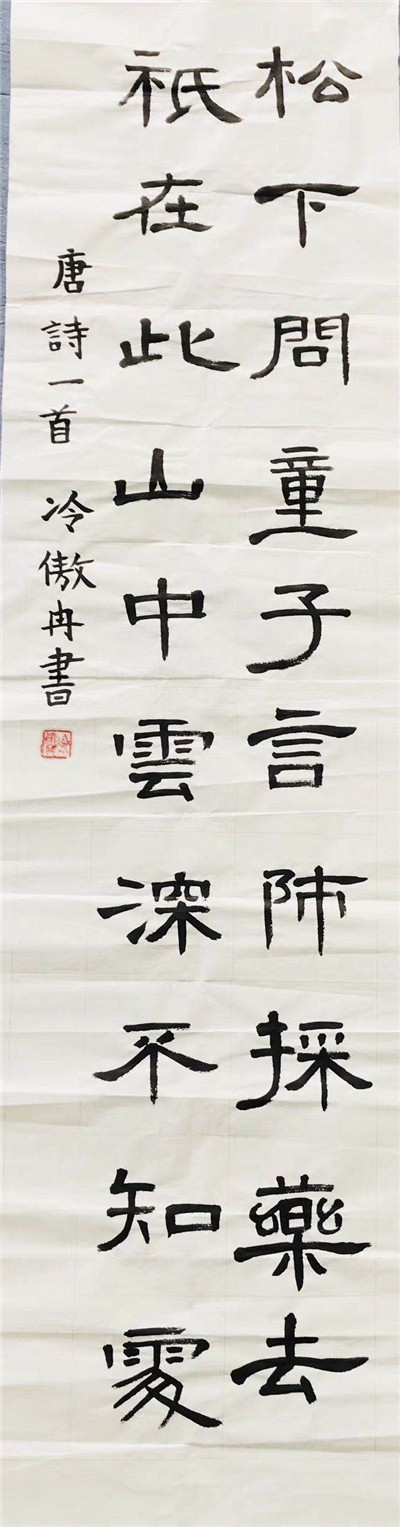 松下問童子言師採藥去
祇在此山中雲深不知處
唐詩一首 冷傲冉書